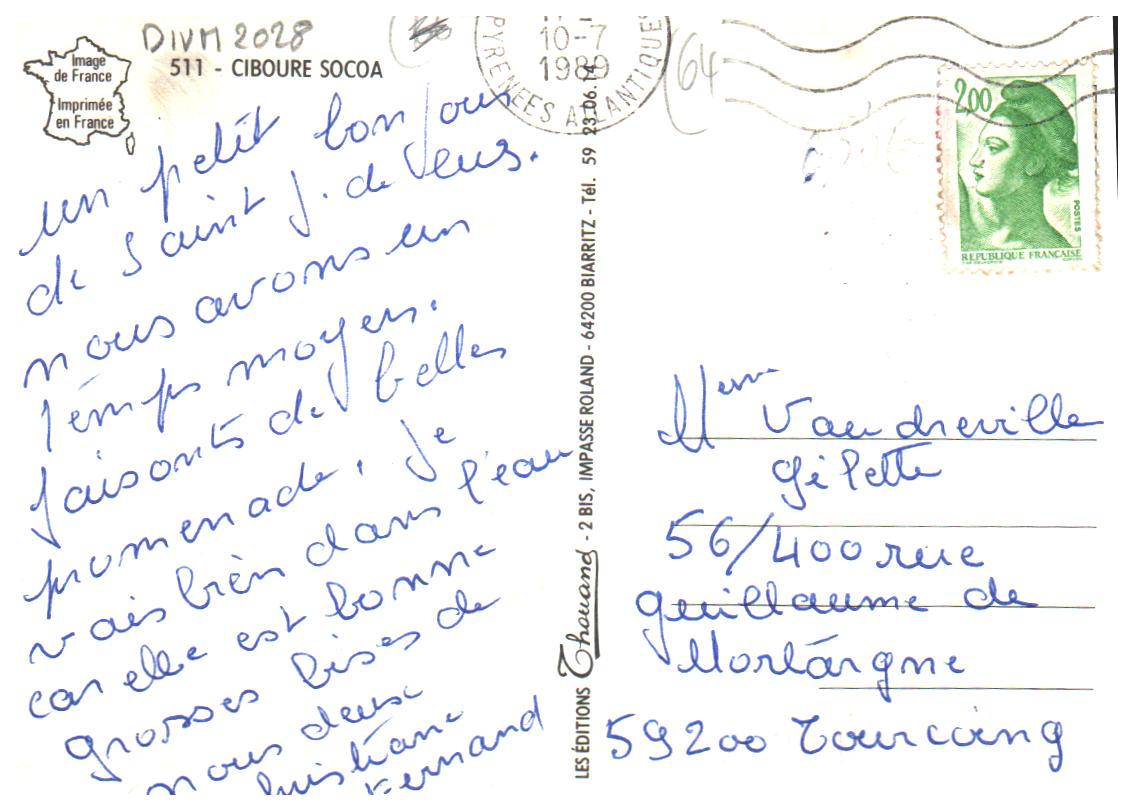 Image
de France
Imprimée
en France
DIVM 2028
511 - CIBOURE SOCOA
un petit bonjour
de Saint J. de Leus.
nous avons un
temps moyen.
faisonts de belles
promenade, je
vais bien dans l'eau
car elle est bonne
grosses bises de
nous deux
Christiane
Fernand
LES ÉDITIONS Thouand - 2 BIS, IMPASSE ROLAND - 64200 BIARRITZ - Tél. 59 23.06.14
10-7
1989
PYRENEES ATLANTIQUES
(64
2,00
POSTES
REPUBLIQUE FRANÇAISE
Meme Vandreville
Gilette
56/400 rue
guillaume de
Mortârgne
59200 Tourcoing